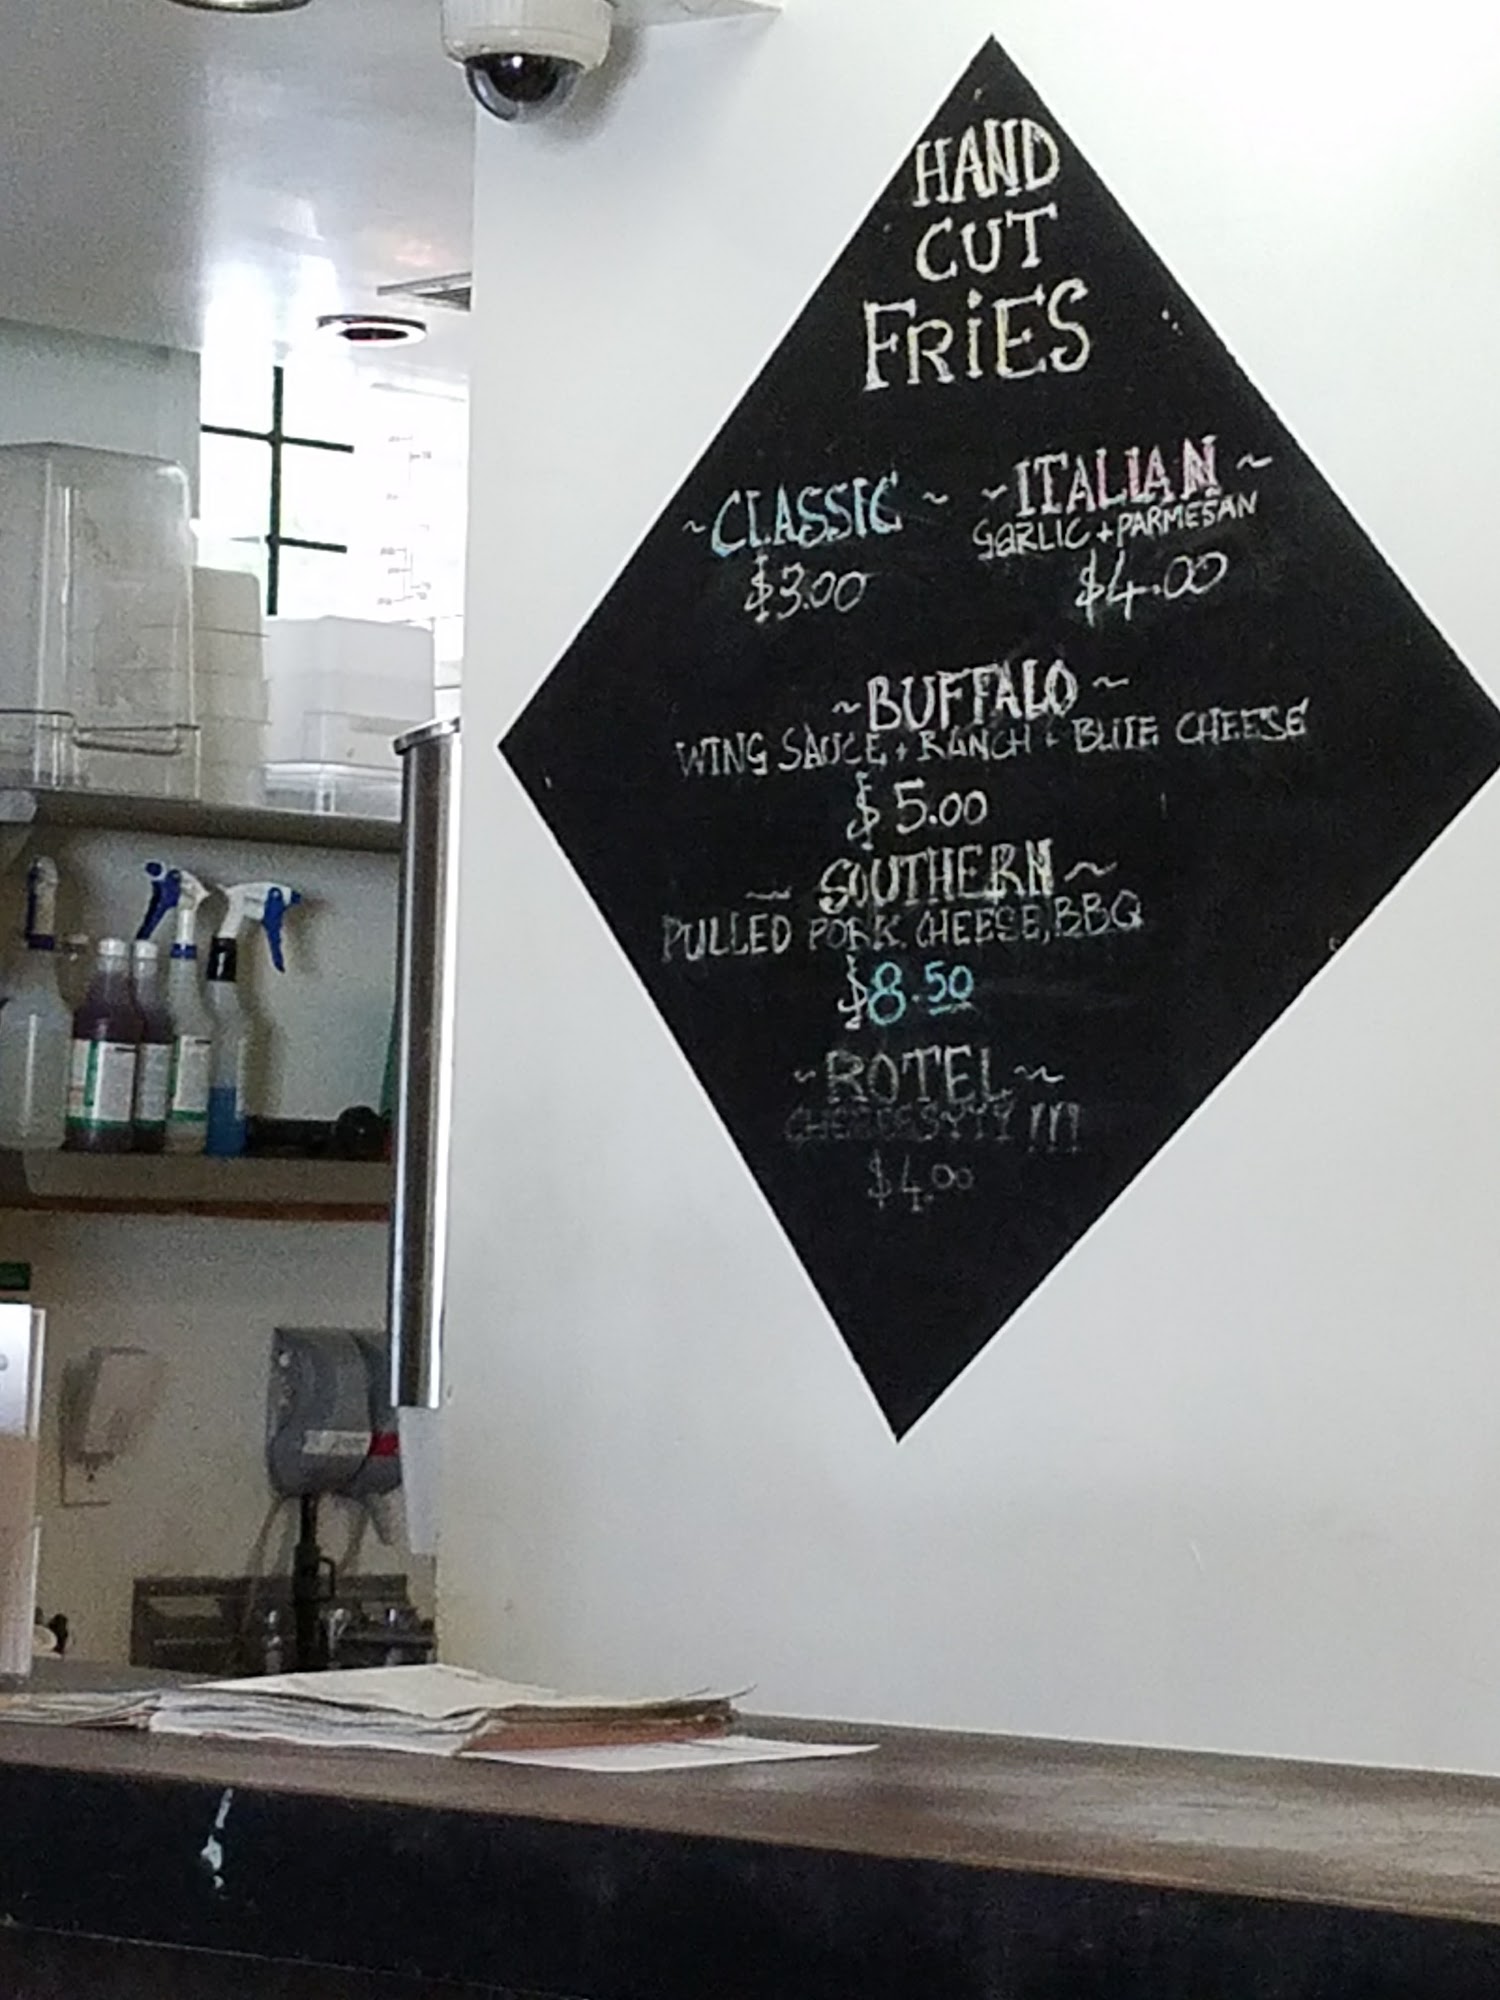 HAND
CUT
FRiES
~CLASSIC~
$3.00
~ITALIAN~
GARLIC + PARMESAN
$4.00
~BUFFALO~
WING SAUCE + RANCH + BLUE CHEESE
$5.00
~SOUTHERN~
PULLED PORK, CHEESE, BBQ
$8.50
~ROTEL~
!!!
$4.00